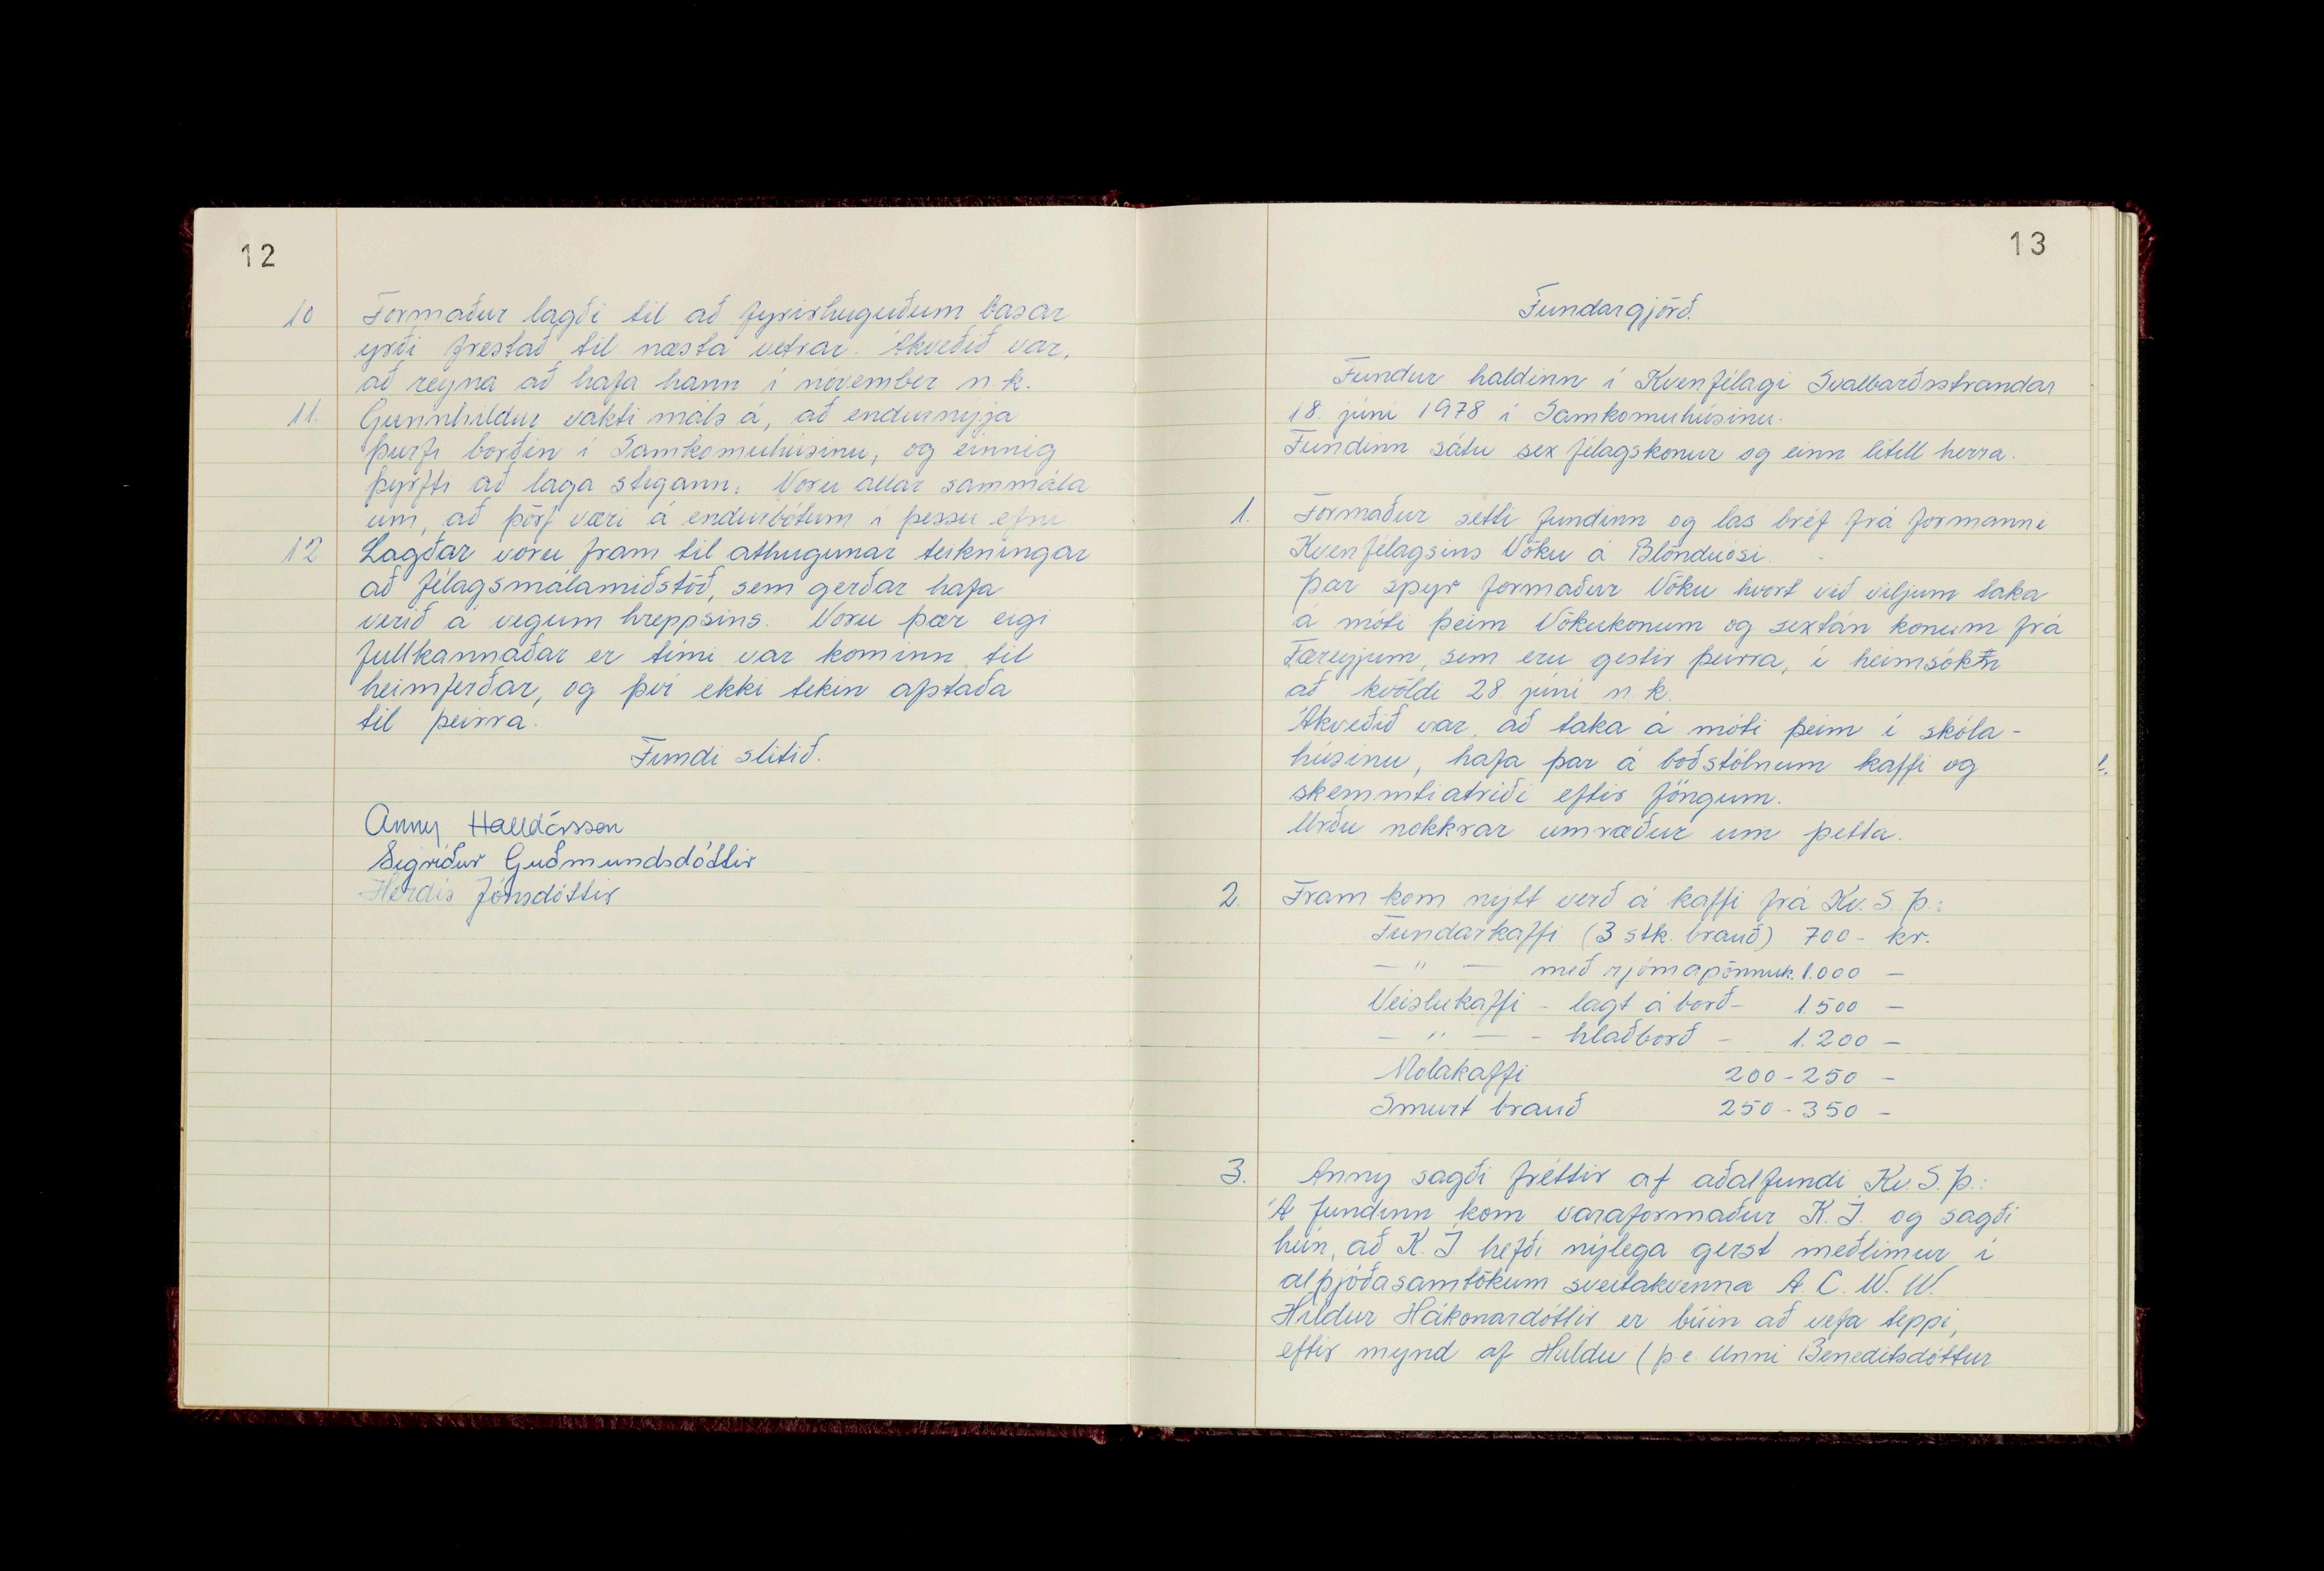 12
10 Formaður lagði til að fyrirhuguðum basar
yrði frestað til næsta vetrar. Ákveðið var,
að reyna að hafa hann í nóvember n.k.
11. Gunnhildur vakti máls á, að endurnýja
þurfi borðin í Samkomuhúsinu, og einnig
þyrfti að laga stigann. Voru allar sammála
um, að þörf væri á endurbótum í þessu efni
12 Lagðar voru fram til athugunar teikningar
að félagsmálamiðstöð, sem gerðar hafa
verið á vegum hreppsins. Voru þær eigi
fullkannaðar er tími var kominn til
heimferðar, og því ekki tekin afstaða
til þeirra.
Fundi slitið.
Anny Halldórsson
Sigríður Guðmundsdóttir
Herdís Jónsdóttir
13
Fundargjörð.
Fundur haldinn í Kvenfélagi Svalbarðsstrandar
18. júní 1978 í Samkomuhúsinu.
Fundinn sátu sex félagskonur og einn lítill herra.
1. Formaður setti fundinn og las bréf frá formanni
Kvenfélagsins Vöku á Blönduósi.
Þar spyr formaður Vöku hvort við viljum taka
á móti þeim Vökukonum og sextán konum frá
Færeyjum, sem eru gestir þeirra, í heimsókn
að kvöldi 28. júní n.k.
Ákveðið var, að taka á móti þeim í skóla-
húsinu, hafa þar á boðstólnum kaffi og
skemmtiatriði eftir föngum.
Urðu nokkrar umræður um þetta.
2. Fram kom nýtt verð á kaffi frá Kv. S. Þ.:
Fundarkaffi (3 stk. brauð) 700 - kr.
— " — með rjómapönnuk. 1.000 —
Veislukaffi - lagt á borð - 1.500 —
— " — - hlaðborð - 1.200 —
Molakaffi 200-250 -
Smurt brauð 250-350 -
3. Anny sagði fréttir af aðalfundi Kv. S. Þ.:
Á fundinn kom varaformaður K. Í. og sagði
hún, að K. Í hefði nýlega gerst meðlimur í
alþjóðasamtökum sveitakvenna A. C. W. W.
Hildur Hákonardóttir er búin að vefa teppi,
eftir mynd af Huldu (þ.e. Unni Beneditsdóttur